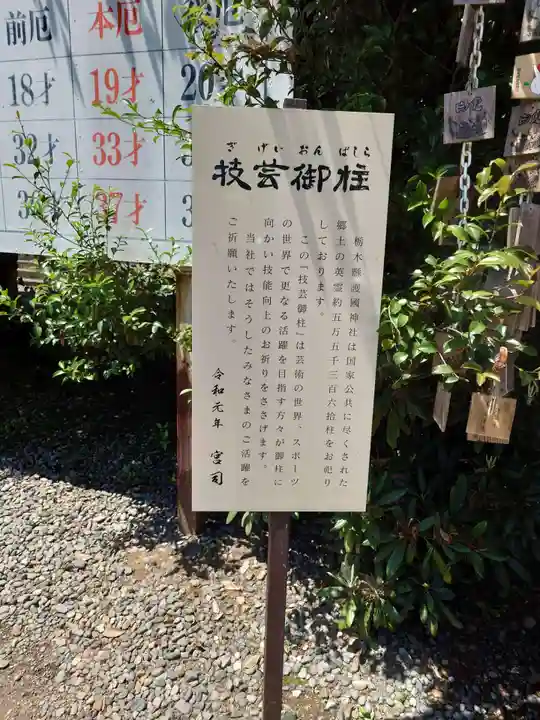 前厄
本厄
18才
19才
20
32才
33才
37才
ぎげいおんばしら
技芸御柱
栃木縣護國神社は国家公共に尽くされた
郷土の英霊約五万五千三百六拾柱をお祀り
しております。
この「技芸御柱」は芸術の世界、スポーツ
の世界で更なる活躍を目指す方々が御柱に
向かい技能向上のお祈りをささげます。
当社ではそうしたみなさまのご活躍を
ご祈願いたします。
令和元年 宮司